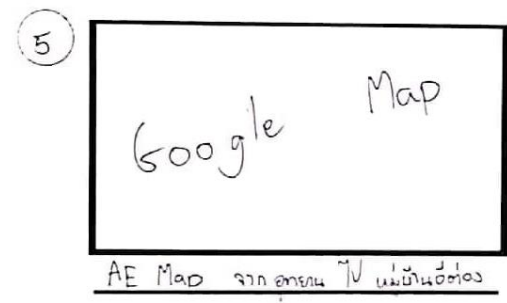 5
Google Map
AE Map จาก อุทยาน ไป หมู่บ้านอีต่อง